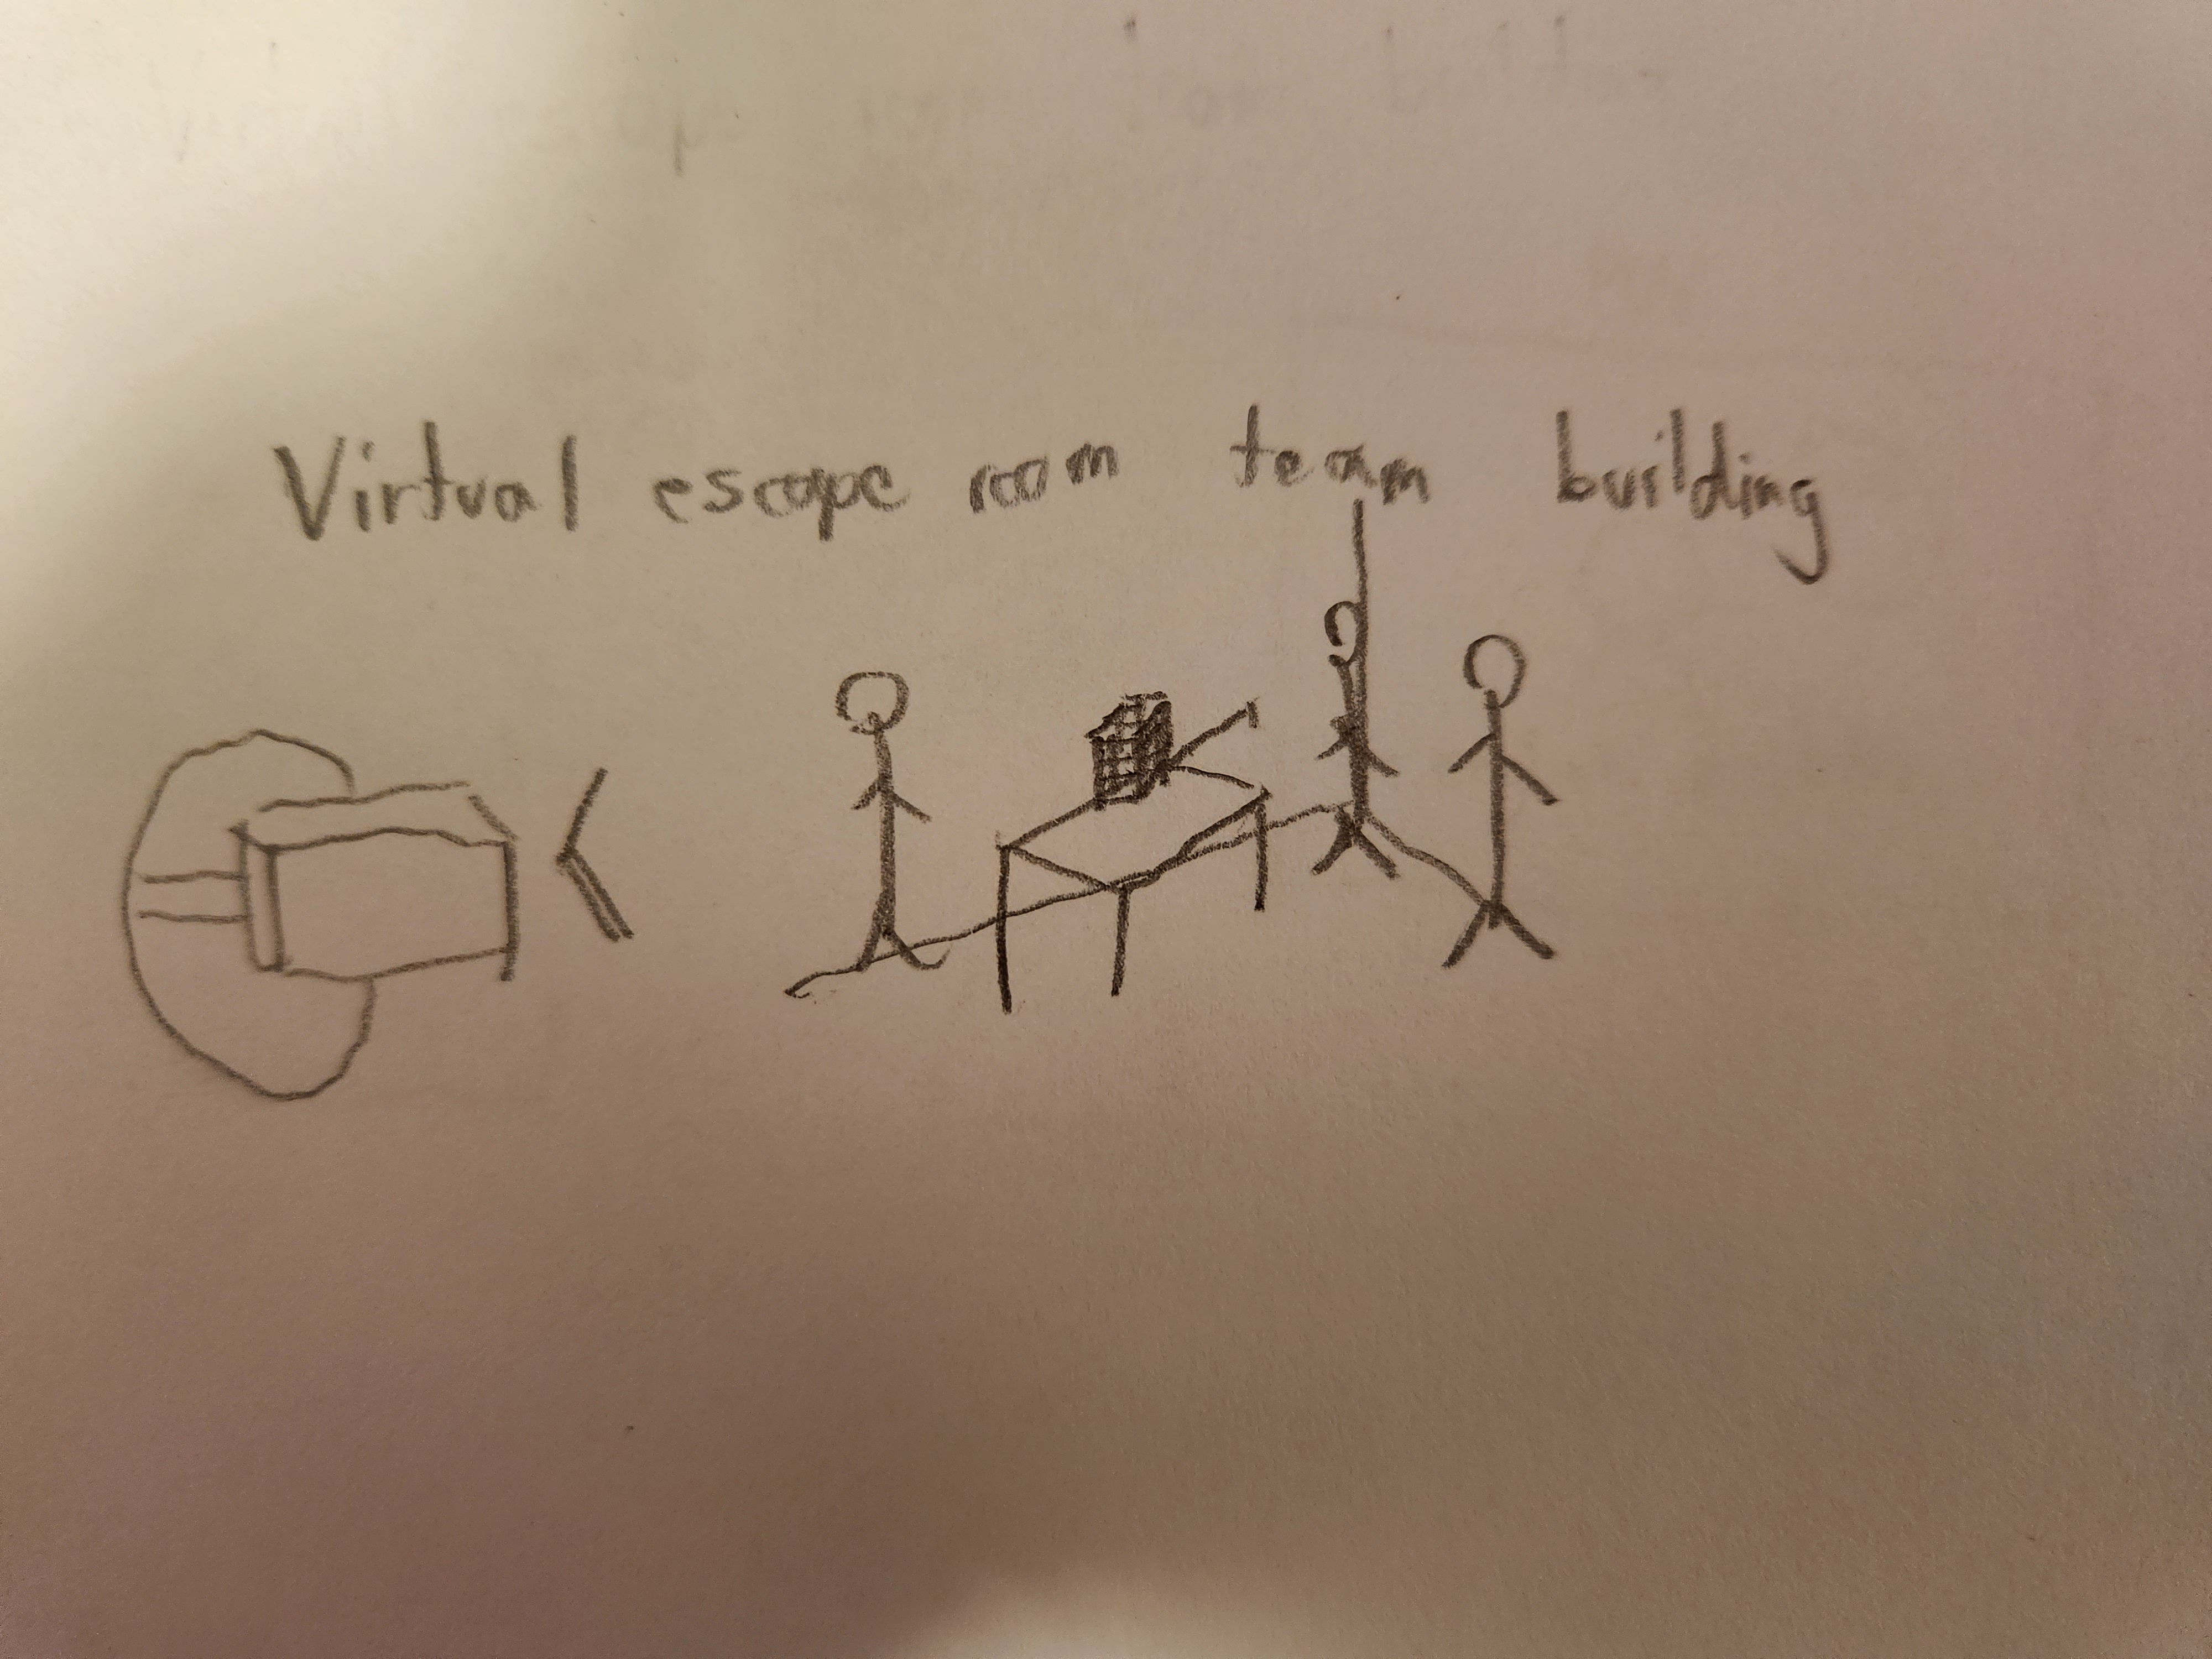 Virtual escape room team building